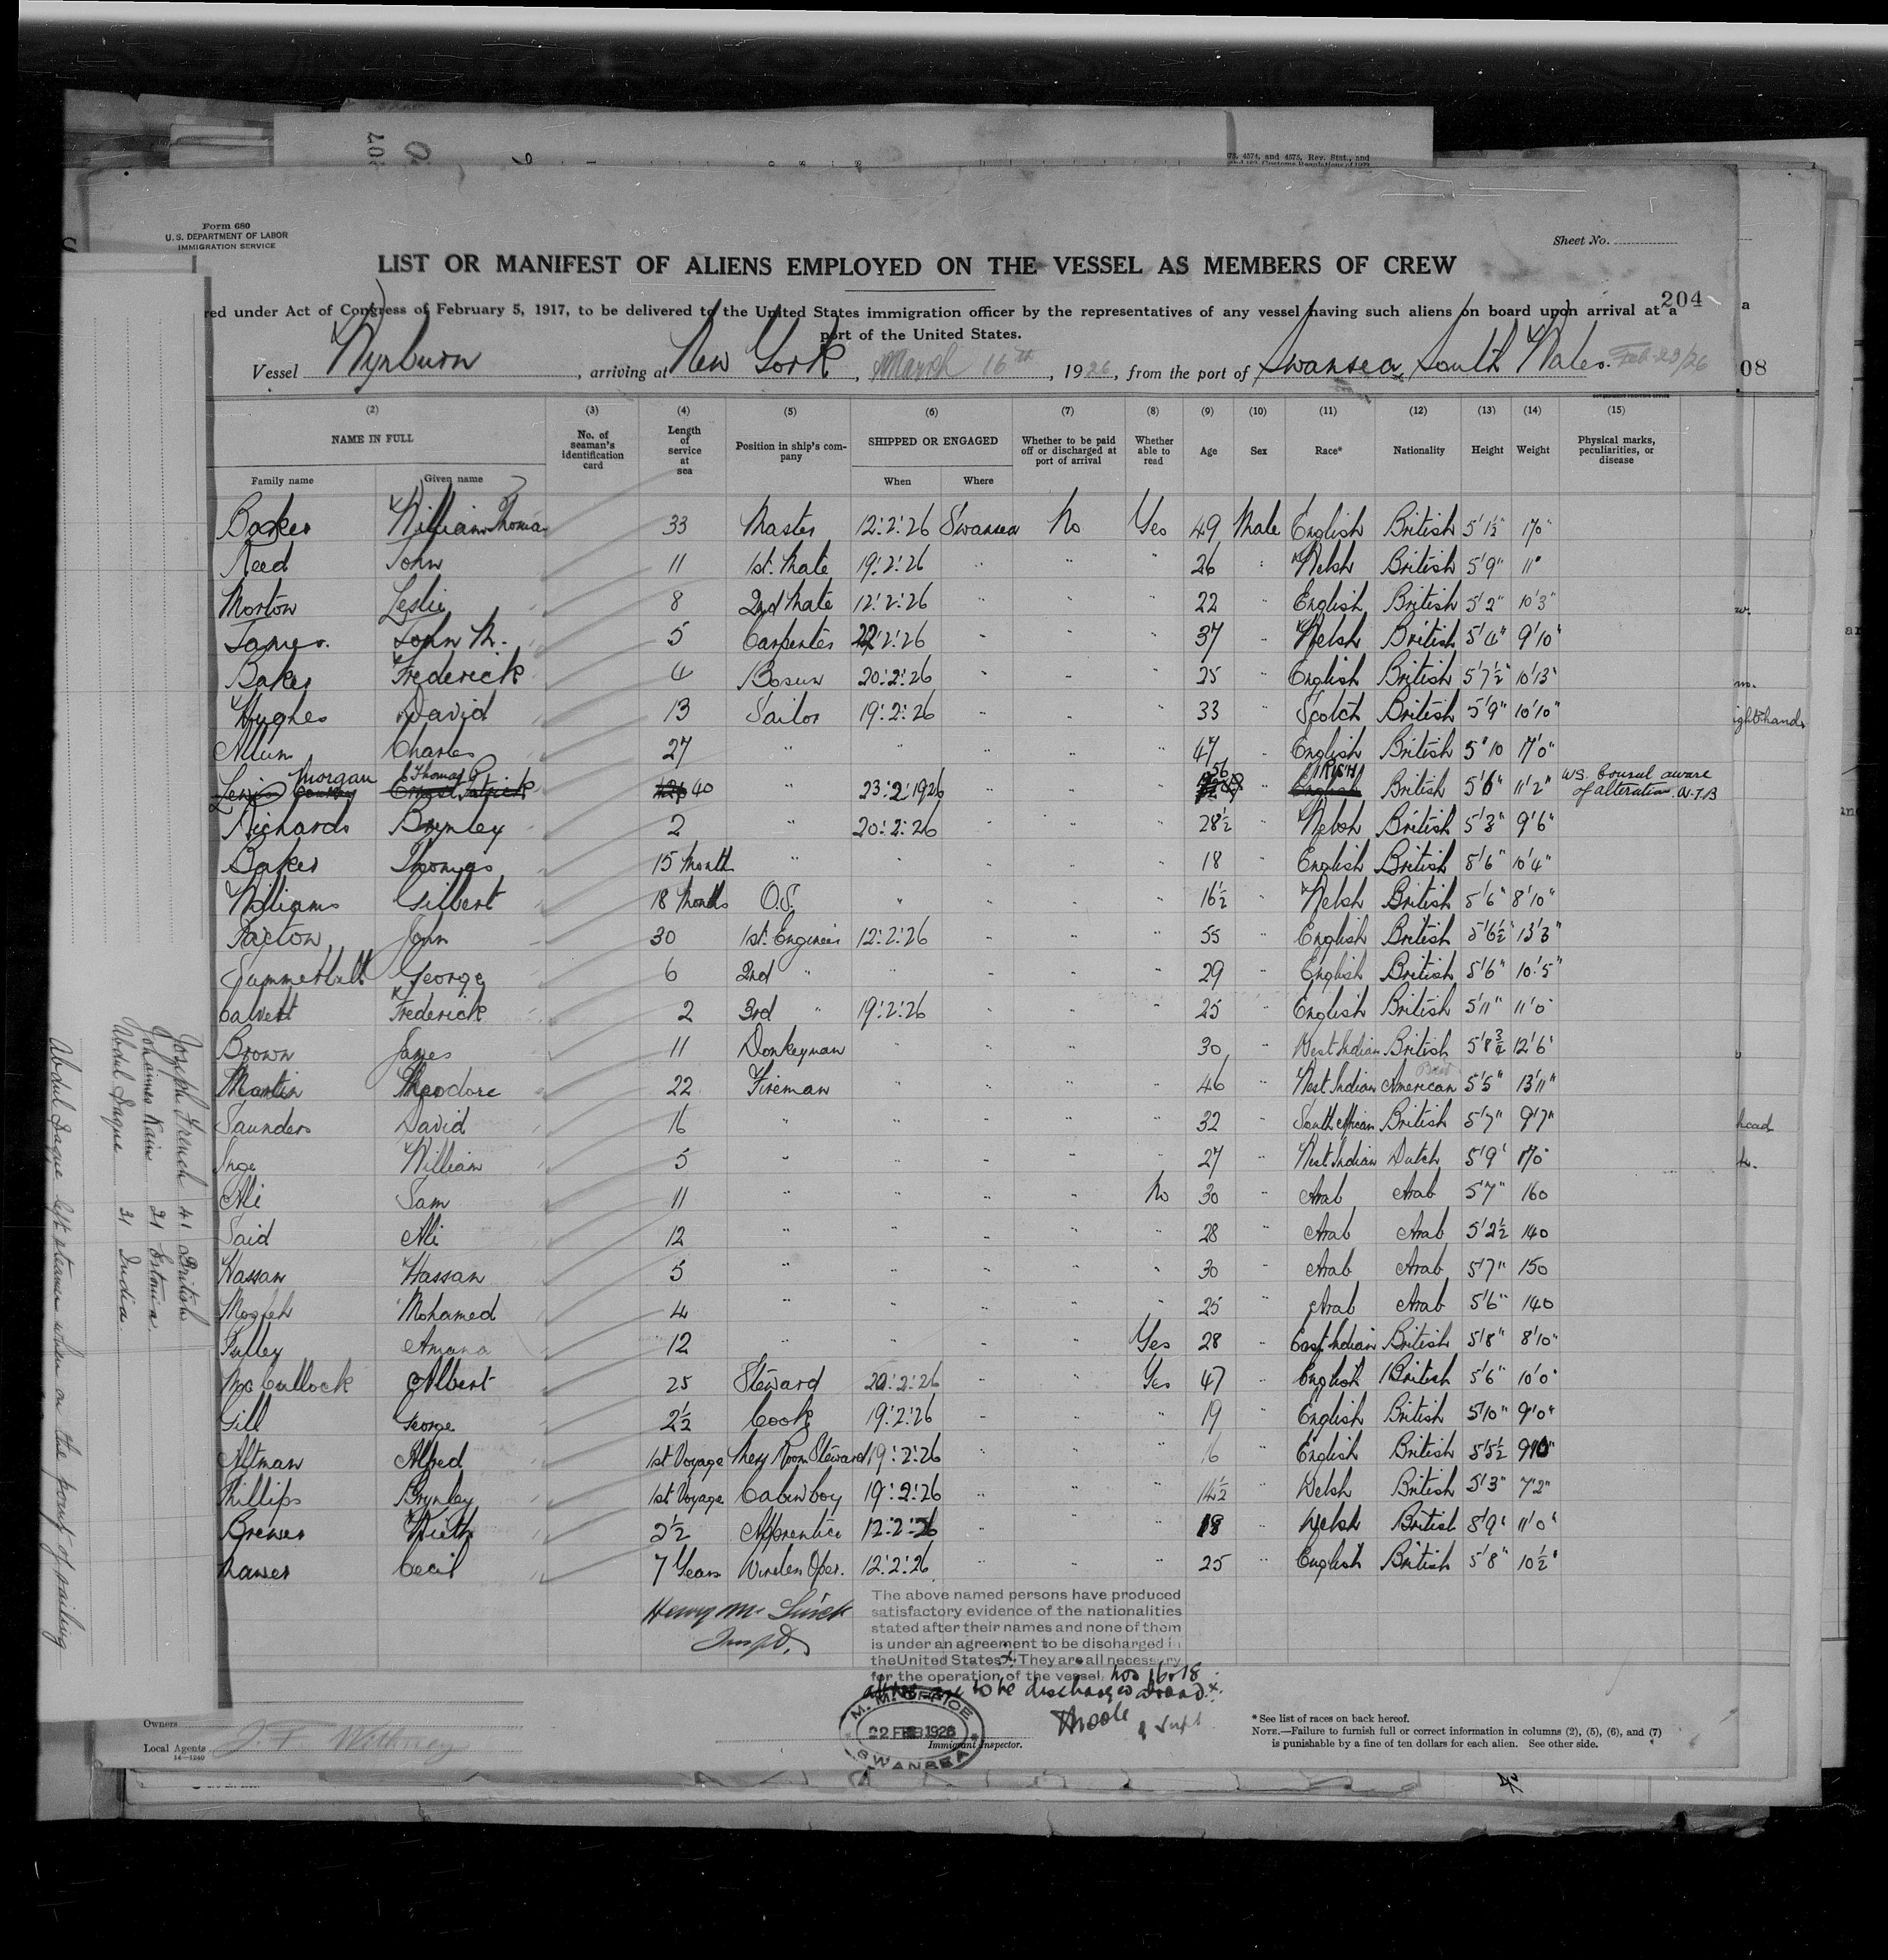 207
73, 4574, and 4575, Rev. Stat., and
Form 680
U.S. DEPARTMENT OF LABOR
IMMIGRATION SERVICE
Sheet No.
LIST OR MANIFEST OF ALIENS EMPLOYED ON THE VESSEL AS MEMBERS OF CREW
204
red under Act of Congress of February 5, 1917, to be delivered to the United States immigration officer by the representatives of any vessel having such aliens on board upon arrival at a
port of the United States.
Vessel Wynburn, arriving at New York, March 16th, 1926, from the port of Swansea, South Wales. Feb 23/26
08
(2) (3) (4) (5) (6) (7) (8) (9) (10) (11) (12) (13) (14) (15)
NAME IN FULL No. of seaman's identification card Length of service at sea Position in ship's company SHIPPED OR ENGAGED Whether to be paid off or discharged at port of arrival Whether able to read Age Sex Race* Nationality Height Weight Physical marks, peculiarities, or disease
Family name Given name When Where
Baker William Thomas 33 Master 12:2:26 Swansea No Yes 49 Male English British 5'1½" 170"
Reed John 11 1st. Mate 19:2:26 " " " 26 " Welsh British 5'9" 11"
Morton Leslie 8 2nd Mate 12:2:26 " " " 22 " English British 5'2" 10'3"
James. John M. 5 Carpenter 22:2:26 " " " 37 " Welsh British 5'4" 9'10"
Baker Frederick 4 Bosun 20:2:26 " " " 25 " English British 5'7½" 10'13"
Hughes David 13 Sailor 19:2:26 " " " 33 " Scotch British 5'9" 10'10"
Allum Charles 27 " " " " " 47 " English British 5'10
Morgan Thomas 40 " 23:2:1926 " " " 56 " IRISH British 5'6" 11'2" U.S. Consul aware of alteration. W.T.B
Richards Brynley 2 " 20:2:26 " " " 28½ " Welsh British 5'3" 9'6"
Baker Thomas 15 Month " " " " " 18 " English British 5'6" 10'4"
Williams Gilbert 18 Months O.S. " " " " 16½ " Welsh British 5'6" 8'10"
Paxton John 30 1st. Engineer 12:2:26 " " " 55 " English British 5'6½" 13'3"
Summerbutt George 6 2nd " " " " " 29 " English British 5'6" 10'5"
Calvert Frederick 2 3rd " 19:2:26 " " " 25 " English British 5'11" 11'0"
Brown James 11 Donkeyman " " " " 30 " West Indian British 5'8¾ 12'6"
Martin Theodore 22 Fireman " " " " 46 " West Indian American 5'5" 13'11"
Saunders David 16 " " " " " 32 " South African British 5'7" 9'7"
Inge William 5 " " " " " 27 " West Indian Dutch 5'9"
Ali Sam 11 " " " " No 30 " Arab Arab 5'7" 160
Said Ali 12 " " " " 28 " Arab Arab 5'2½ 140
Hassan Hassan 5 " " " " " 30 " Arab Arab 5'7" 150
Mosleh Mohamed 4 " " " " " 25 " Arab Arab 5'6" 140
Pulley Amana 12 " " " " Yes 28 " East Indian British 5'8" 8'10"
McCullock Albert 25 Steward 20:2:26 " " Yes 47 " English British 5'6" 10'0"
Gill George 2½ Cook 19:2:26 " " " 19 " English British 5'10" 9'0"
Altman Alfred 1st Voyage Mess Room Steward 19:2:26 " " " 16 " English British 5'5½
Phillips Brynley 1st Voyage Cabin boy 19:2:26 " " " 14½ " Welsh British 5'3" 7'2"
Brewer Keith 2½ Apprentice 12:2:26 " " " 18 " Welsh British 5'9" 11'0"
Cecil 7 Years Wireless Oper. 12:2:26 " " " 25 " English British 5'8" 10½"
The above named persons have produced
satisfactory evidence of the nationalities
stated after their names and none of them
is under an agreement to be discharged in
the United States. They are all necessary
for the operation of the vessel, nos 16 & 18
to be discharged abroad
M.M. OFFICE
22 FEB 1926
SWANSEA
Immigrant Inspector.
*See list of races on back hereof.
NOTE.—Failure to furnish full or correct information in columns (2), (5), (6), and (7)
is punishable by a fine of ten dollars for each alien. See other side.
Owners
Local Agents J. F. Whitney
14—1240
Joseph French 41 British
Johannes Kain 21 Estonia.
Abdul Haque 31 India.
Abdul Haque left steamer when on the point of sailing
ight hand
head